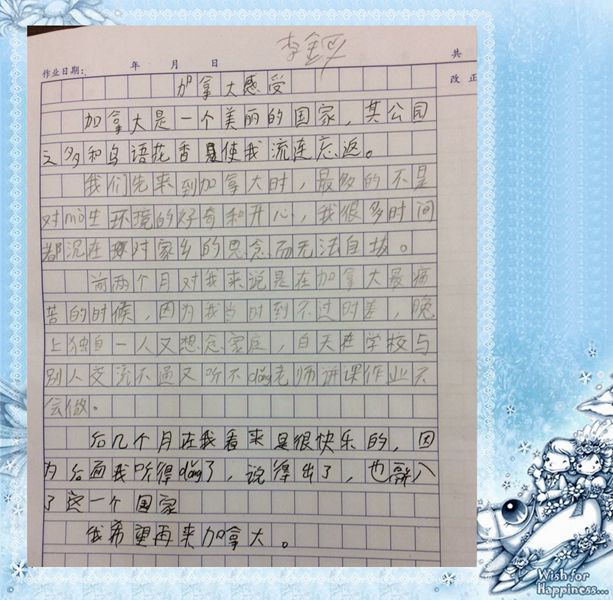 李
共
作业日期: 年 月 日
改正
加拿大感受
加拿大是一个美丽的国家，其公园
之多和鸟语花香使我流连忘返。
我们先来到加拿大时，最多的不是
对mò生环境的好奇和开心，我很多时间
都沉在对家乡的思念而无法自拔。
前两个月对我来说是在加拿大最痛
苦的时候，因为我当时到不过时差，晚
上独自一人又想念家庭，白天在学校与
别人交流不通又听不dǒng老师讲课作业不
会做。
后几个月在我看来是很快乐的，因
为后面我听得dǒng了，说得出了，也融入
了这一个国家
我希望再来加拿大。
Wish for
Happiness...